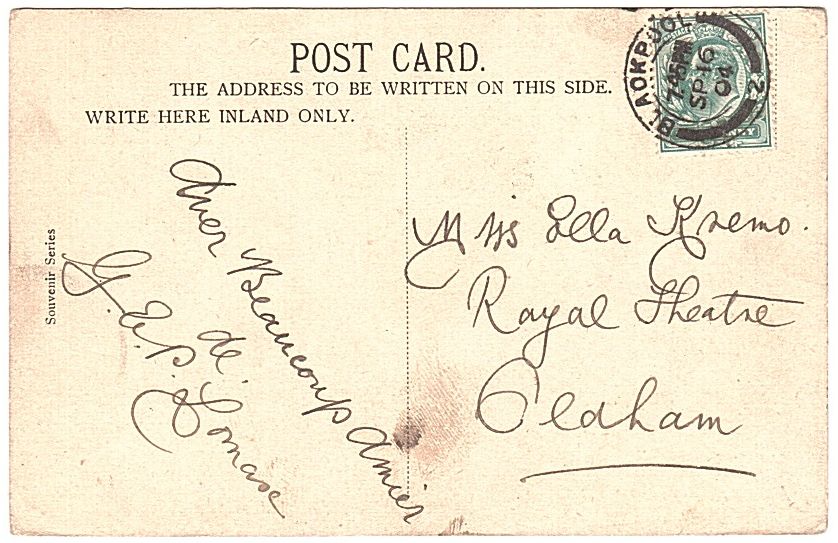 POST CARD.
THE ADDRESS TO BE WRITTEN ON THIS SIDE.
WRITE HERE INLAND ONLY.
BLACKPOOL
7.45PM
SP 16
04
2
Souvenir Series
Aver Beaucoup Amier
de
G. & P. Lomase
Miss Ella Kremo.
Royal Theatre
Oldham